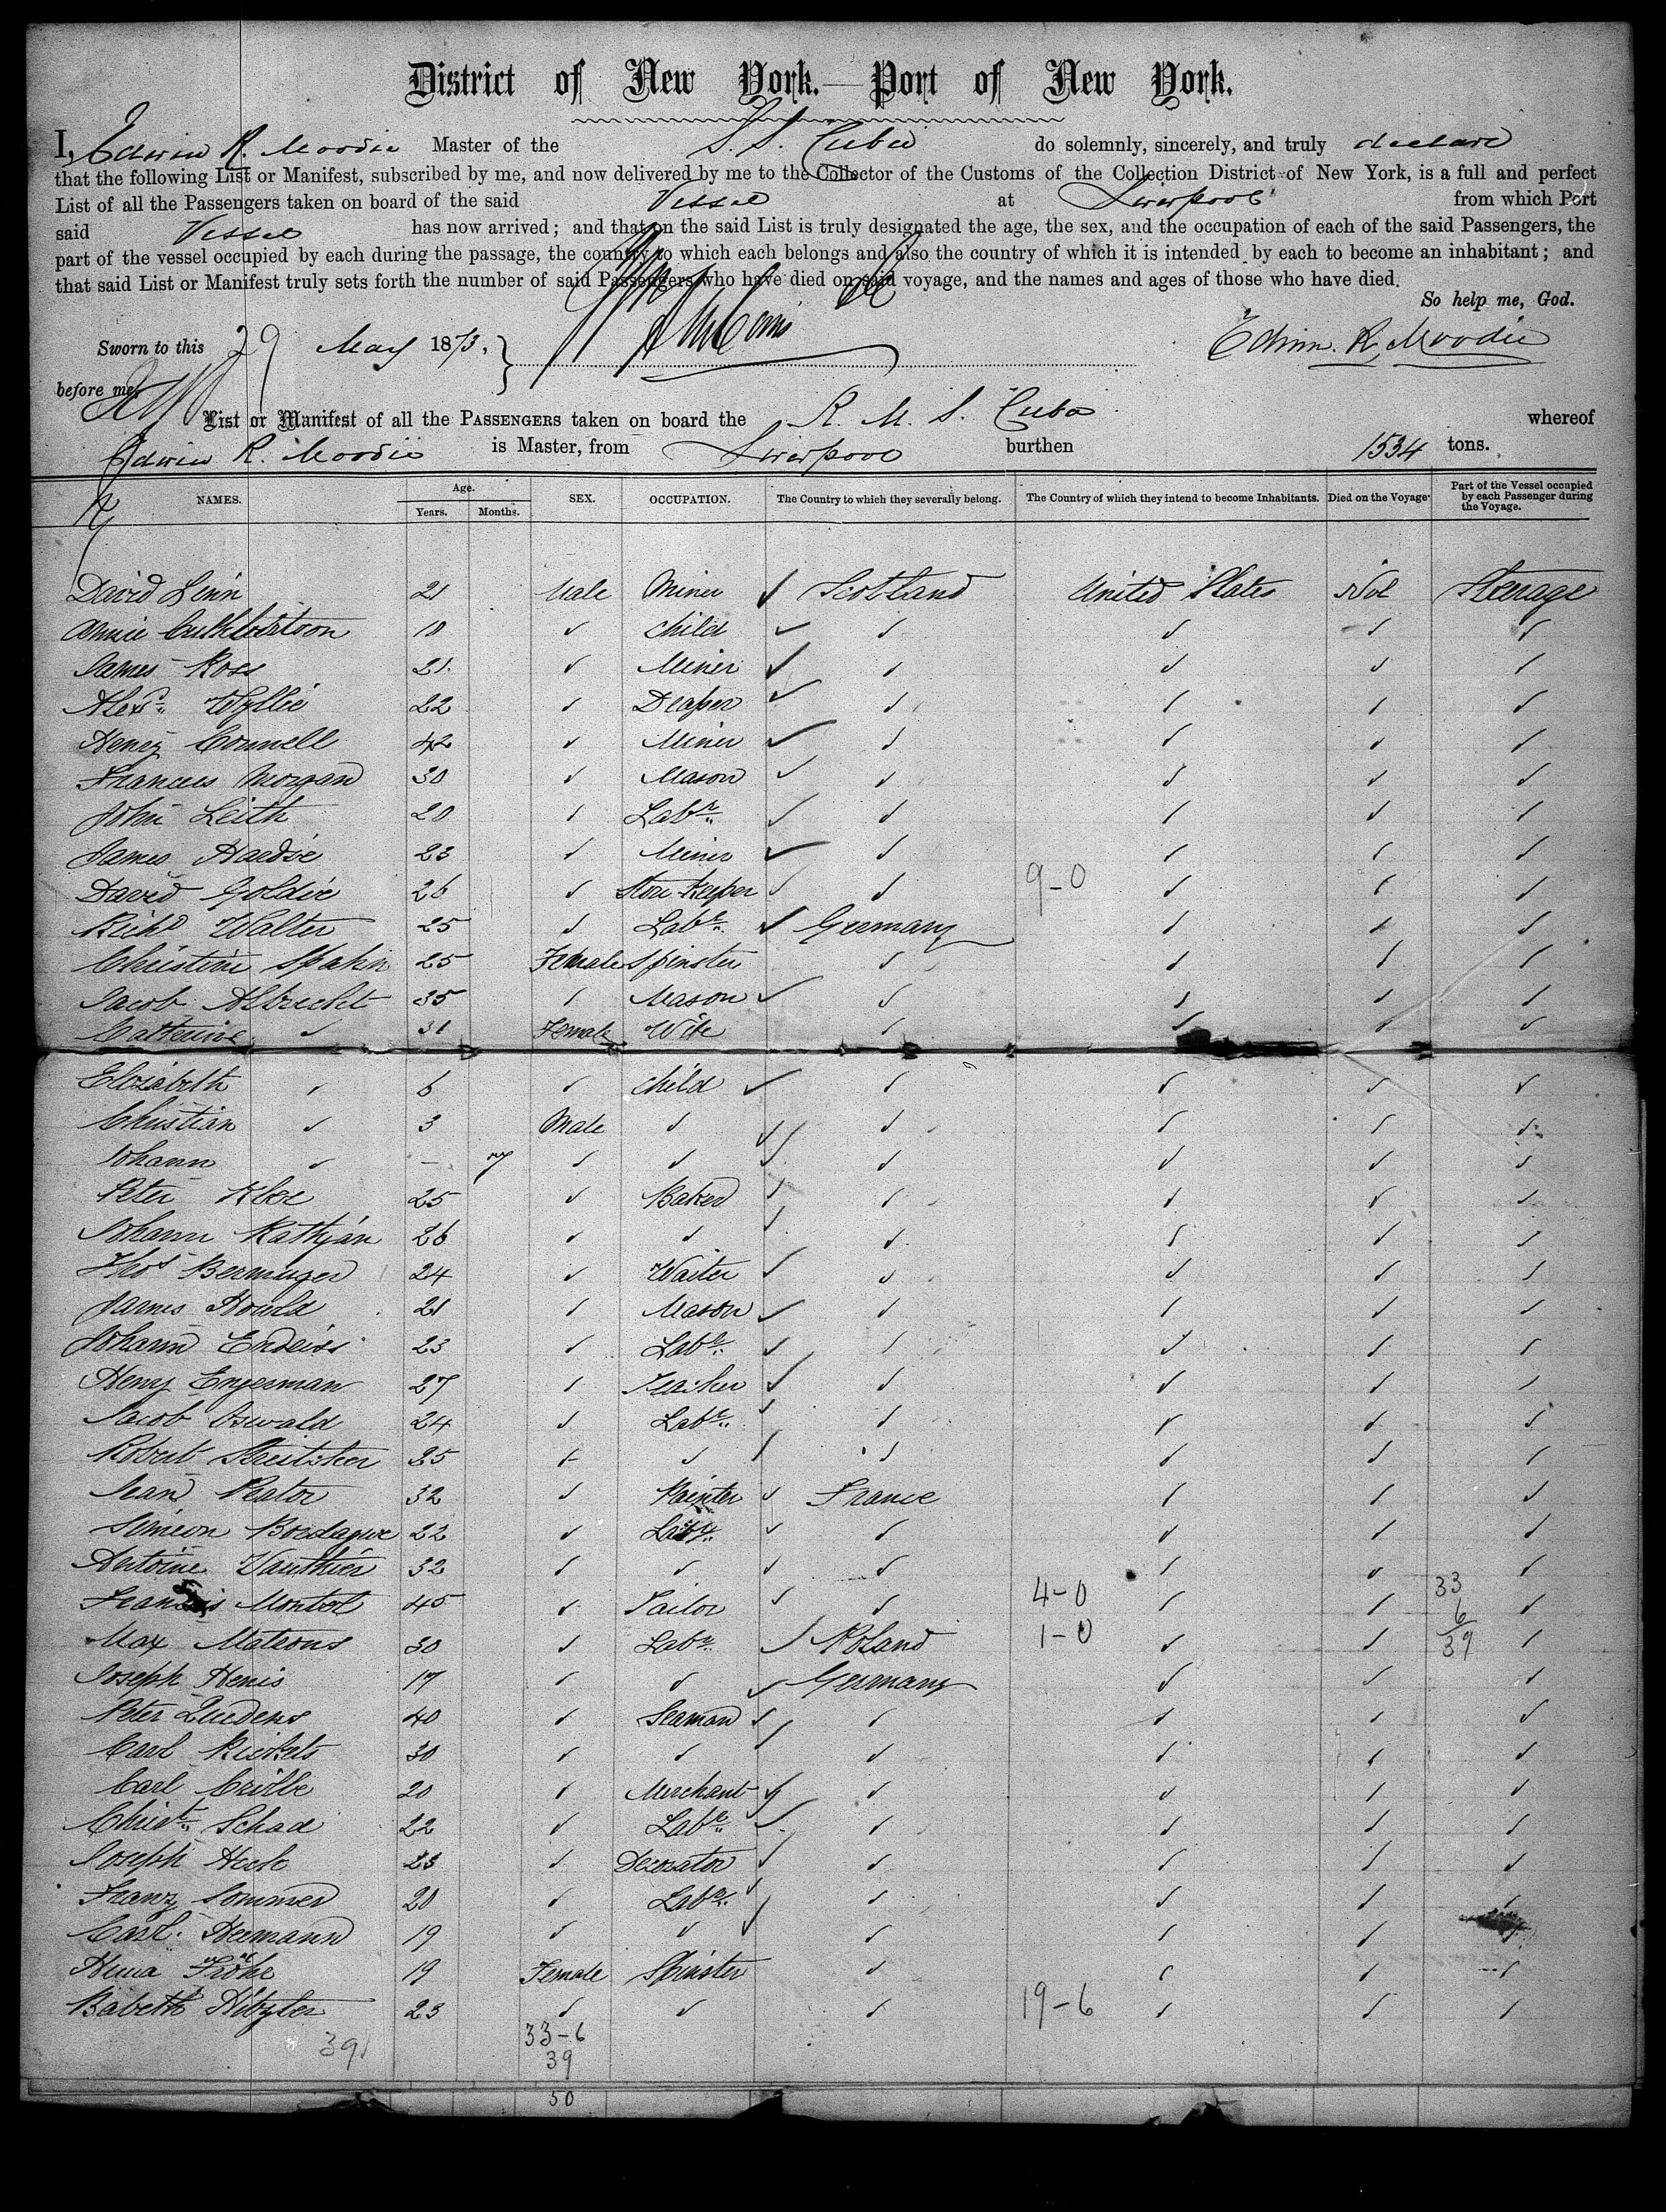 District of New York.—Port of New York.
I, Edwin R. Moodie Master of the S. S. Cuba do solemnly, sincerely, and truly declare
that the following List or Manifest, subscribed by me, and now delivered by me to the Collector of the Customs of the Collection District of New York, is a full and perfect
List of all the Passengers taken on board of the said Vessel at Liverpool from which Port
said Vessel has now arrived; and that on the said List is truly designated the age, the sex, and the occupation of each of the said Passengers, the
part of the vessel occupied by each during the passage, the country to which each belongs and also the country of which it is intended by each to become an inhabitant; and
that said List or Manifest truly sets forth the number of said Passengers who have died on said voyage, and the names and ages of those who have died.
So help me, God.
Sworn to this 29 May 1873, Edwin. R. Moodie
before me,
List or Manifest of all the PASSENGERS taken on board the R. M. S. Cuba whereof
Edwin R. Moodie is Master, from Liverpool burthen 1534 tons.
NAMES. Age. Years. Months. SEX. OCCUPATION. The Country to which they severally belong. The Country of which they intend to become Inhabitants. Died on the Voyage. Part of the Vessel occupied by each Passenger during the Voyage.
David Linn 21 Male Miner ✓ Scotland United States Not Steerage
Annie Cuthbertson 10 ✓ Child ✓ ✓ ✓ ✓ ✓
James Ross 21 ✓ Miner ✓ ✓ ✓ ✓ ✓
Alexr. Wyllie 22 ✓ Draper ✓ ✓ ✓ ✓ ✓
Henry Connell 42 ✓ Miner ✓ ✓ ✓ ✓ ✓
Frances Morgan 30 ✓ Mason ✓ ✓ ✓ ✓ ✓
John Leith 20 ✓ Labr. ✓ ✓ ✓ ✓ ✓
James Hardie 23 ✓ Miner ✓ ✓ ✓ ✓ ✓
David Goldie 26 ✓ Store Keeper ✓ ✓ 9-0 ✓ ✓ ✓
Richd Walter 25 ✓ Labr. ✓ Germany ✓ ✓ ✓
Christine Spahn 25 Female Spinster ✓ ✓ ✓ ✓
Jacob Albrecht 35 ✓ Mason ✓ ✓ ✓ ✓ ✓
Catherine ✓ 31 Female Wife ✓ ✓ ✓ ✓
Elizabeth ✓ 6 ✓ Child ✓ ✓ ✓ ✓ ✓
Christian ✓ 3 Male ✓ ✓ ✓ ✓ ✓ ✓
Johann ✓ – 7 ✓ ✓ ✓ ✓ ✓ ✓ ✓
Peter Klee 25 ✓ Baker ✓ ✓ ✓ ✓ ✓
Johann Kathjan 26 ✓ ✓ ✓ ✓ ✓ ✓ ✓
Thos Berninger 24 ✓ Waiter ✓ ✓ ✓ ✓ ✓
James Howld 21 ✓ Mason ✓ ✓ ✓ ✓ ✓
Johann Endeiss 23 ✓ Labr. ✓ ✓ ✓ ✓ ✓
Henry Engerman 27 ✓ ✓ ✓ ✓ ✓ ✓
Jacob Oswald 24 ✓ Labr. ✓ ✓ ✓ ✓ ✓
Robert 25 ✓ ✓ ✓ ✓ ✓ ✓ ✓
Jean Peator 32 ✓ Painter ✓ France ✓ ✓ ✓
Simeon Bordague 22 ✓ Labr. ✓ ✓ ✓ ✓ ✓
Antoine Vauthier 32 ✓ ✓ ✓ ✓ ✓ ✓ ✓
Francis Montel 45 ✓ Tailor ✓ ✓ 4-0 ✓ ✓ 33 ✓
Max Mateons 30 ✓ Labr. ✓ Poland 1-0 ✓ ✓ 6 39 ✓
Joseph Henis 17 ✓ ✓ ✓ Germany ✓ ✓ ✓
Peter Luedens 40 ✓ Seaman ✓ ✓ ✓ ✓ ✓
Carl Rickels 30 ✓ ✓ ✓ ✓ ✓ ✓ ✓
Carl Crille 20 ✓ Merchant ✓ ✓ ✓ ✓ ✓
Christ. Schad 22 ✓ Labr. ✓ ✓ ✓ ✓ ✓
Joseph Heck 23 ✓ Decorator ✓ ✓ ✓ ✓ ✓
Franz Sommer 20 ✓ Labr. ✓ ✓ ✓ ✓ ✓
Carl Hermann 19 ✓ ✓ ✓ ✓ ✓ ✓ ✓
Anna Fröhe 19 Female Spinster ✓ ✓ ✓ ✓
Babeth Hitzler 23 ✓ ✓ ✓ 19-6 ✓ ✓ ✓
391 33-6
39
50